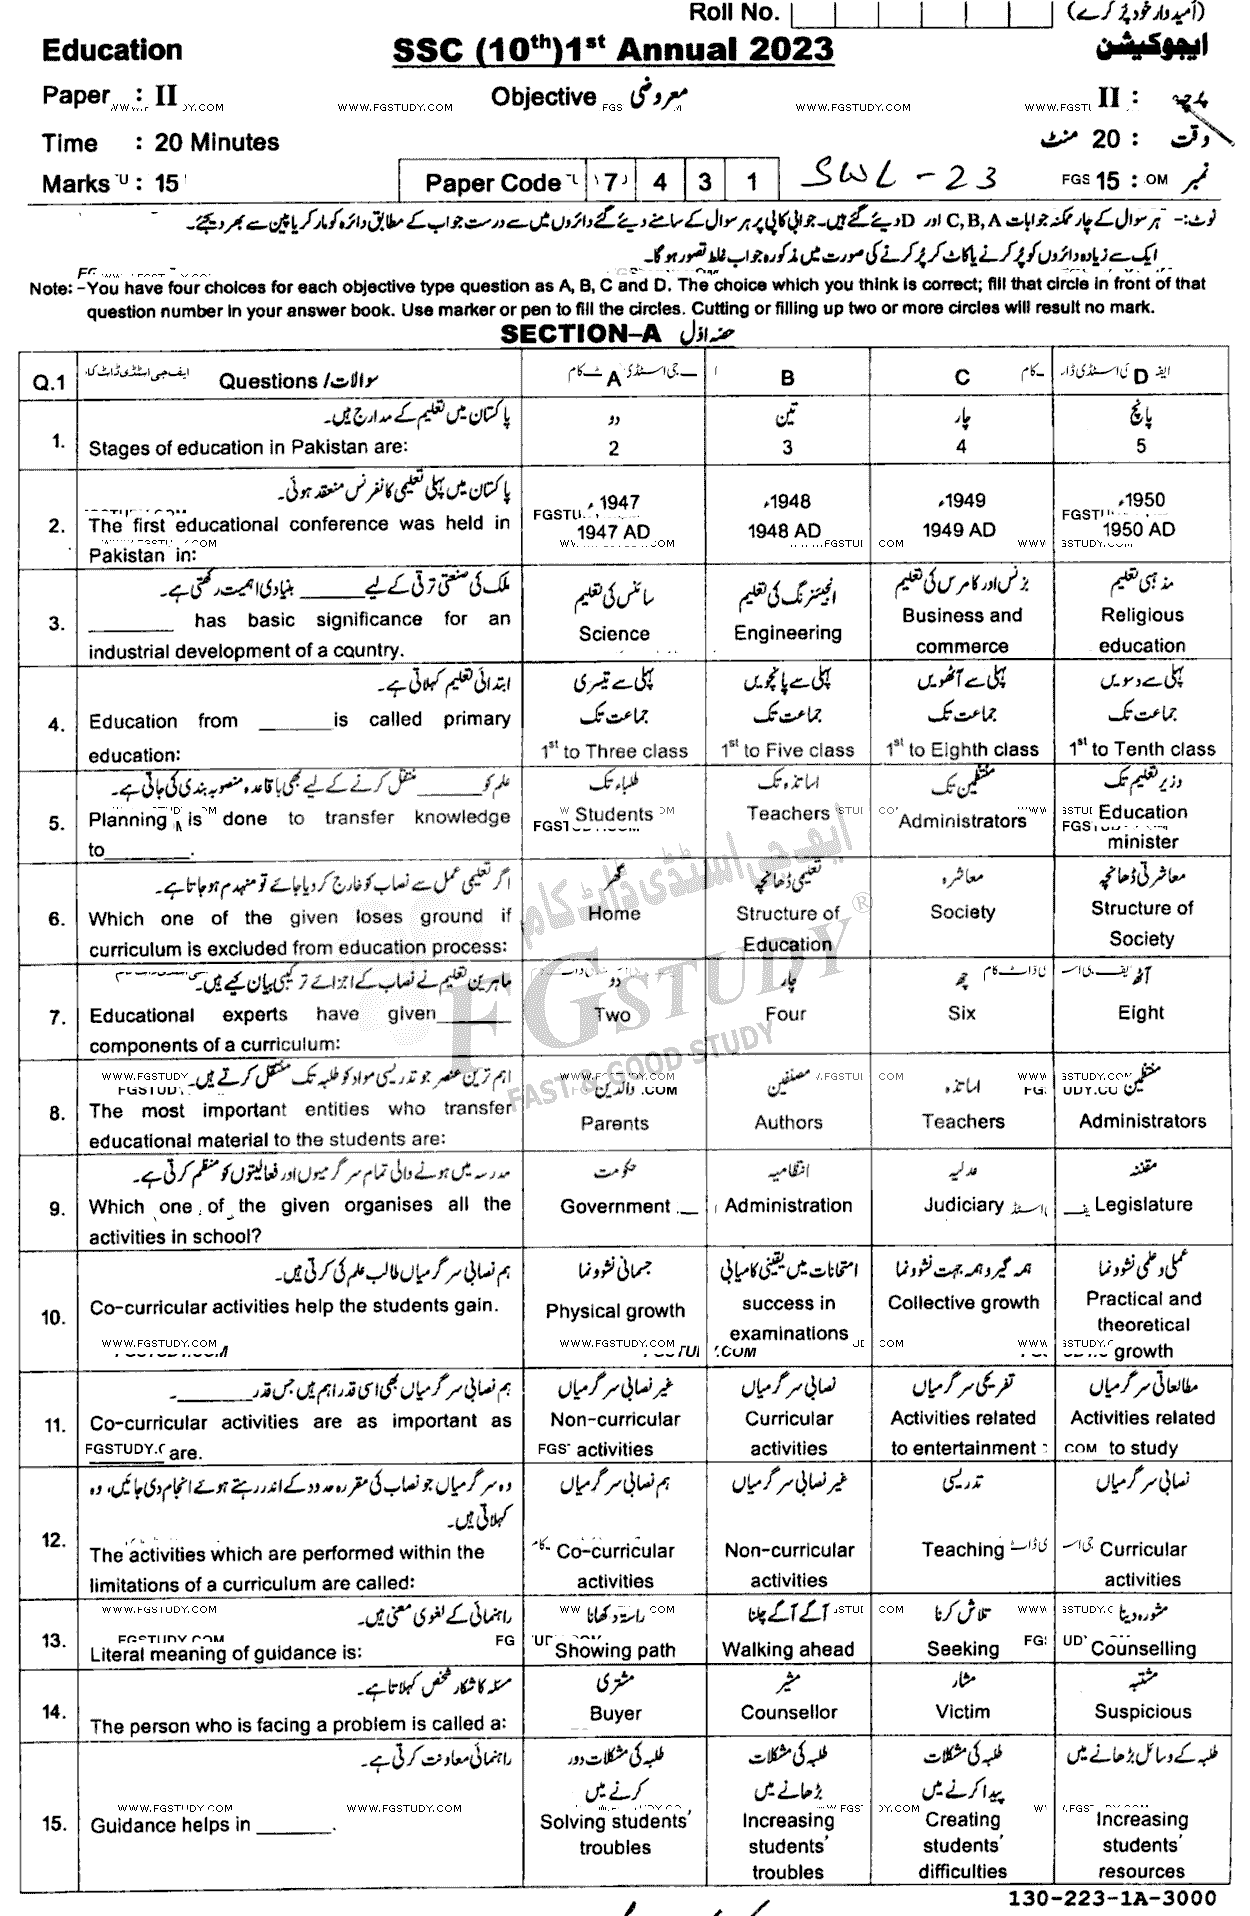 Roll No. (امیدوار خود پُر کرے)
Education SSC (10th)1st Annual 2023 ایجوکیشن
Paper : II Objective معروضی II : پرچہ
WWW.FGSTUDY.COM
Time : 20 Minutes وقت : 20 منٹ
Marks : 15 Paper Code 7 4 3 1 SWL-23 نمبر : 15
نوٹ:- ہر سوال کے چار ممکنہ جوابات C,B,A اور D دیئے گئے ہیں۔ جوابی کاپی پر ہر سوال کے سامنے دیئے گئے دائروں میں سے درست جواب کے مطابق دائرہ کو مارکر یا پین سے بھر دیجئے۔
ایک سے زیادہ دائروں کو پُر کرنے یا کاٹ کر پُر کرنے کی صورت میں مذکورہ جواب غلط تصور ہو گا۔
Note: -You have four choices for each objective type question as A, B, C and D. The choice which you think is correct; fill that circle in front of that
question number in your answer book. Use marker or pen to fill the circles. Cutting or filling up two or more circles will result no mark.
SECTION-A حصہ اوّل
Q.1 Questions / سوالات A B C D
پاکستان میں تعلیم کے مدارج ہیں۔ دو تین چار پانچ
1. Stages of education in Pakistan are: 2 3 4 5
پاکستان میں پہلی تعلیمی کانفرنس منعقد ہوئی۔ 1947ء 1948ء 1949ء 1950ء
2. The first educational conference was held in 1947 AD 1948 AD 1949 AD 1950 AD
Pakistan in:
ملک کی صنعتی ترقی کے لیے ______ بنیادی اہمیت رکھتی ہے۔ سائنس کی تعلیم انجینئرنگ کی تعلیم بزنس اور کامرس کی تعلیم مذہبی تعلیم
3. ________ has basic significance for an Science Engineering Business and Religious
industrial development of a country. commerce education
ابتدائی تعلیم کہلاتی ہے۔ پہلی سے تیسری پہلی سے پانچویں پہلی سے آٹھویں پہلی سے دسویں
جماعت تک جماعت تک جماعت تک جماعت تک
4. Education from _______ is called primary 1st to Three class 1st to Five class 1st to Eighth class 1st to Tenth class
education:
علم کو ______ منتقل کرنے کے لیے بھی باقاعدہ منصوبہ بندی کی جاتی ہے۔ طلباء تک اساتذہ تک منتظمین تک وزیر تعلیم تک
5. Planning is done to transfer knowledge Students Teachers Administrators Education
to________. minister
اگر تعلیمی عمل سے نصاب کو خارج کر دیا جائے تو منہدم ہو جاتا ہے۔ گھر تعلیمی ڈھانچہ معاشرہ معاشرتی ڈھانچہ
6. Which one of the given loses ground if Home Structure of Society Structure of
curriculum is excluded from education process: Education Society
ماہرین تعلیم نے نصاب کے اجزائے ترکیبی بیان کیے ہیں۔ دو چار چھ آٹھ
7. Educational experts have given_______ Two Four Six Eight
components of a curriculum:
اہم ترین عنصر جو تدریسی مواد کو طلبہ تک منتقل کرتے ہیں۔ والدین مصنفین اساتذہ منتظمین
8. The most important entities who transfer Parents Authors Teachers Administrators
educational material to the students are:
مدرسہ میں ہونے والی تمام سرگرمیوں اور فعالیتوں کو منظم کرتی ہے۔ حکومت انتظامیہ عدلیہ مقننہ
9. Which one of the given organises all the Government Administration Judiciary Legislature
activities in school?
ہم نصابی سرگرمیاں طالب علم کی کرتی ہیں۔ جسمانی نشوونما امتحانات میں یقینی کامیابی ہمہ گیر و ہمہ جہت نشوونما عملی و علمی نشوونما
10. Co-curricular activities help the students gain. Physical growth success in examinations Collective growth Practical and theoretical growth
WWW.FGSTUDY.COM
ہم نصابی سرگرمیاں بھی اسی قدر اہم ہیں جس قدر ______۔ غیر نصابی سرگرمیاں نصابی سرگرمیاں تفریحی سرگرمیاں مطالعاتی سرگرمیاں
11. Co-curricular activities are as important as Non-curricular Curricular Activities related Activities related
_______ are. activities activities to entertainment to study
وہ سرگرمیاں جو نصاب کی مقررہ حدود کے اندر رہتے ہوئے انجام دی جائیں، وہ ہم نصابی سرگرمیاں غیر نصابی سرگرمیاں تدریسی نصابی سرگرمیاں
کہلاتی ہیں۔
12. The activities which are performed within the Co-curricular Non-curricular Teaching Curricular
limitations of a curriculum are called: activities activities activities
راہنمائی کے لغوی معنی ہیں۔ راستہ دکھانا آگے آگے چلنا تلاش کرنا مشورہ دینا
13. Literal meaning of guidance is: Showing path Walking ahead Seeking Counselling
مسئلہ کا شکار شخص کہلاتا ہے۔ مشتری مشیر مشار مشتبہ
14. The person who is facing a problem is called a: Buyer Counsellor Victim Suspicious
راہنمائی معاونت کرتی ہے۔ طلبہ کی مشکلات دور طلبہ کی مشکلات طلبہ کی مشکلات طلبہ کے وسائل بڑھانے میں
کرنے میں بڑھانے میں پیدا کرنے میں
15. Guidance helps in _______. Solving students' Increasing Creating Increasing
troubles students' students' students'
troubles difficulties resources
FGSTUDY®
FAST & GOOD STUDY
ایف جی اسٹڈی ڈاٹ کام
130-223-1A-3000